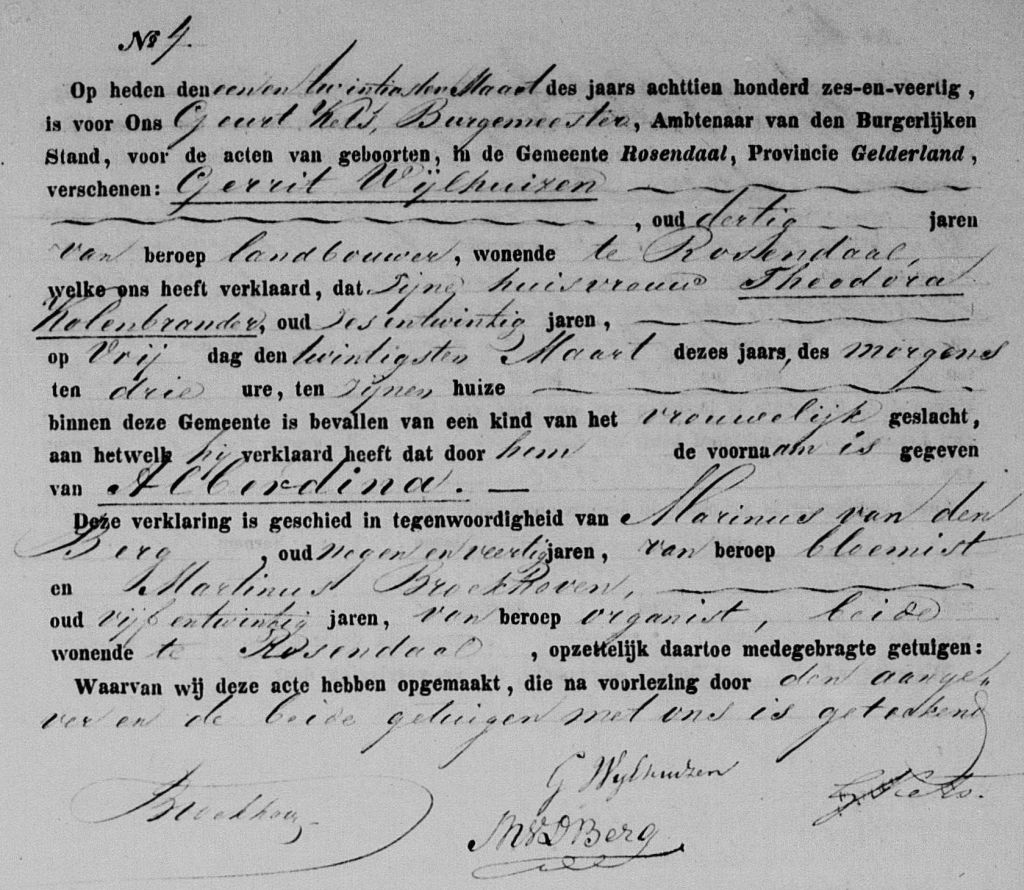 No 4.
Op heden den een en twintigsten Maart des jaars achttien honderd zes-en-veertig,
is voor Ons Geurt Kets, Burgemeester, Ambtenaar van den Burgerlijken
Stand, voor de acten van geboorten, in de Gemeente Rosendaal, Provincie Gelderland,
verschenen: Gerrit Wijlhuizen
, oud dertig jaren
van beroep landbouwer, wonende te Rosendaal,
welke ons heeft verklaard, dat Zijne huisvrouw Theodora
Kolenbrander, oud Zes entwintig jaren,
op Vrij dag den twintigsten Maart dezes jaars, des morgens
ten drie ure, ten Zijnen huize
binnen deze Gemeente is bevallen van een kind van het vrouwelijk geslacht,
aan hetwelk hij verklaard heeft dat door hem de voornaam is gegeven
van Alberdina. —
Deze verklaring is geschied in tegenwoordigheid van Marinus van den
Berg, oud negen en veertig jaren, van beroep bloemist
en Martinus Broekhoven,
oud vijf entwintig jaren, van beroep organist, beide
wonende te Rosendaal, opzettelijk daartoe medegebragte getuigen:
Waarvan wij deze acte hebben opgemaakt, die na voorlezing door den aange-
ver en de beide getuigen met ons is geteekend
G Wylhuizen
Broekhoven
G. Kets.
M V D Berg